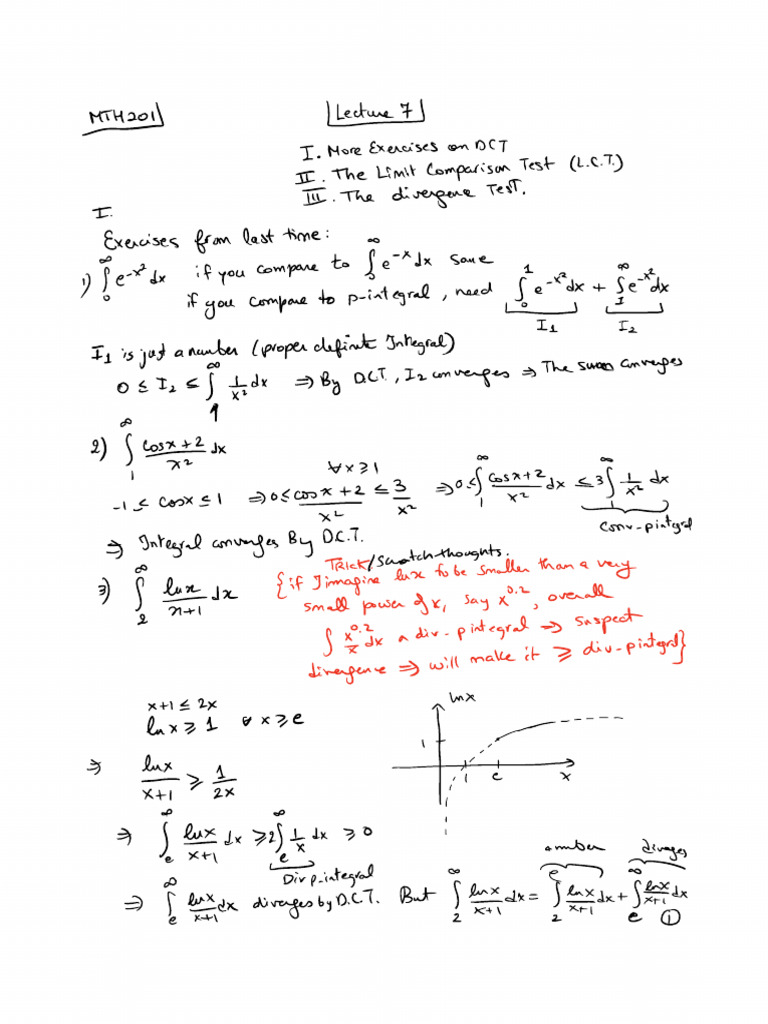 MTH201
Lecture 7
I. More Exercises on DCT
II. The Limit Comparison Test (L.C.T.)
III. The divergene Test.
I.
Exercises from last time:
1) ∫₀^∞ e^{-x²} dx if you compare to ∫₀^∞ e^{-x} dx same
if you compare to p-integral, need ∫₀^1 e^{-x²} dx + ∫₁^∞ e^{-x²} dx
I₁ I₂
I₁ is just a number (proper definite Integral)
0 ≤ I₂ ≤ ∫₁^∞ 1/x² dx ⇒ By D.C.T., I₂ converges ⇒ The sum converges
2) ∫₁^∞ (cosx+2)/x² dx
∀x≥1
-1 ≤ cosx ≤ 1 ⇒ 0 ≤ (cosx+2)/x² ≤ 3/x² ⇒ 0 ≤ ∫₁^∞ (cosx+2)/x² dx ≤ 3∫₁^∞ 1/x² dx
Conv-pintegral
⇒ Integral converges By D.C.T.
Trick/Scratch-thoughts.
3) ∫₂^∞ lnx/(x+1) dx {if I imagine lnx to be smaller than a very
small power of x, say x^{0.2}, overall
∫ x^{0.2}/x dx a div-pintegral ⇒ suspect
divergence ⇒ will make it ≥ div-pintegral}
x+1 ≤ 2x
lnx ≥ 1 ∀ x ≥ e
lnx
1
1 e x
⇒ lnx/(x+1) ≥ 1/(2x)
⇒ ∫ₑ^∞ lnx/(x+1) dx ≥ 2∫ₑ^∞ 1/x dx ≥ 0
Div p-integral
a number diverges
⇒ ∫ₑ^∞ lnx/(x+1) dx diverges by D.C.T. But ∫₂^∞ lnx/(x+1) dx = ∫₂^e lnx/(x+1) dx + ∫ₑ^∞ lnx/(x+1) dx
①